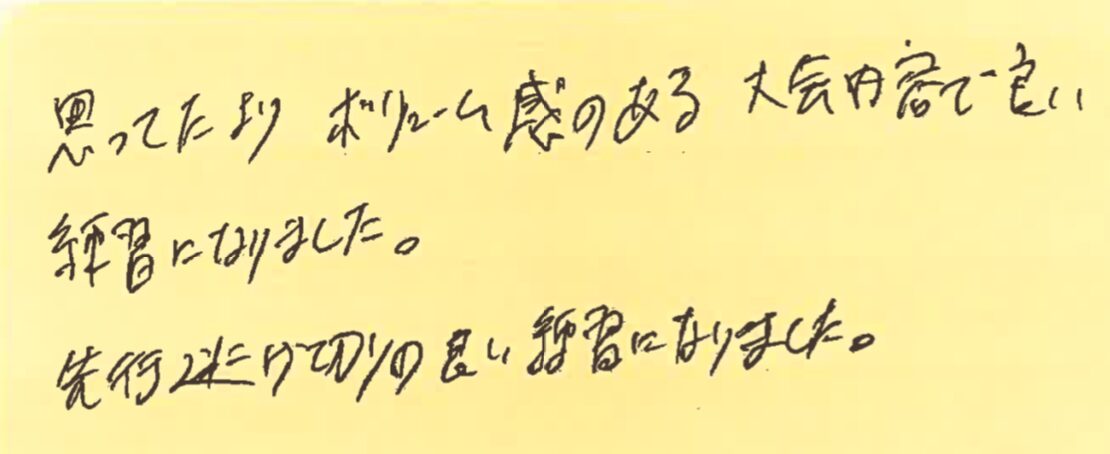 思ってたより ボリューム感のある 大会内容で良い
練習になりました。
先行逃げ切りの良い練習になりました。